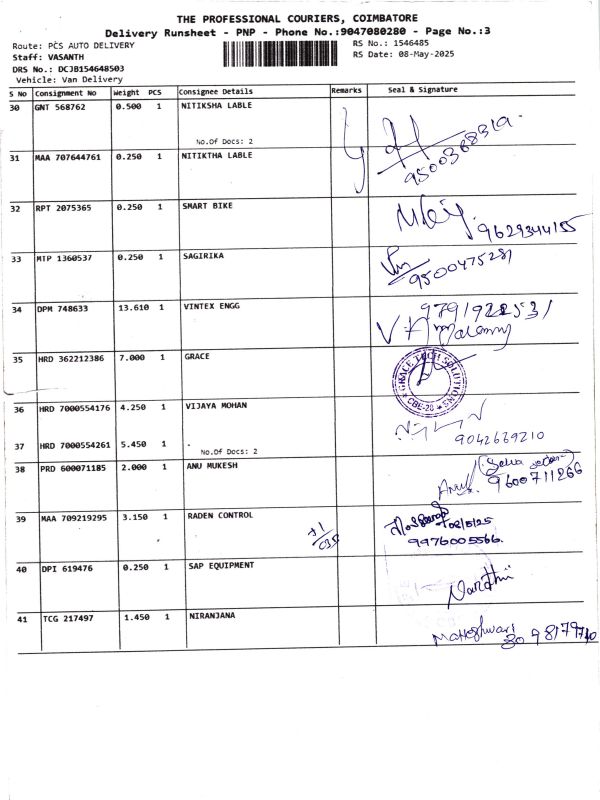 THE PROFESSIONAL COURIERS, COIMBATORE
Delivery Runsheet - PNP - Phone No.:9047080280 - Page No.:3
Route: PCS AUTO DELIVERY RS No.: 1546485
Staff: VASANTH RS Date: 08-May-2025
DRS No.: DCJB154648503
Vehicle: Van Delivery
S No Consignment No Weight PCS Consignee Details Remarks Seal & Signature
30 GNT 568762 0.500 1 NITIKSHA LABLE
No.Of Docs: 2
31 MAA 707644761 0.250 1 NITIKTHA LABLE
32 RPT 2075365 0.250 1 SMART BIKE
9629344155
33 MTP 1360537 0.250 1 SAGIRIKA
9500475281
34 DPM 748633 13.610 1 VINTEX ENGG
35 HRD 362212386 7.000 1 GRACE
GRACE TECH SOLUTIONS
CBE-28
36 HRD 7000554176 4.250 1 VIJAYA MOHAN
9042669210
37 HRD 7000554261 5.450 1 .
No.Of Docs: 2
38 PRD 600071185 2.000 1 ANU MUKESH
9600711266
39 MAA 709219295 3.150 1 RADEN CONTROL
9976005566
40 DPI 619476 0.250 1 SAP EQUIPMENT
41 TCG 217497 1.450 1 NIRANJANA
Maheshwari